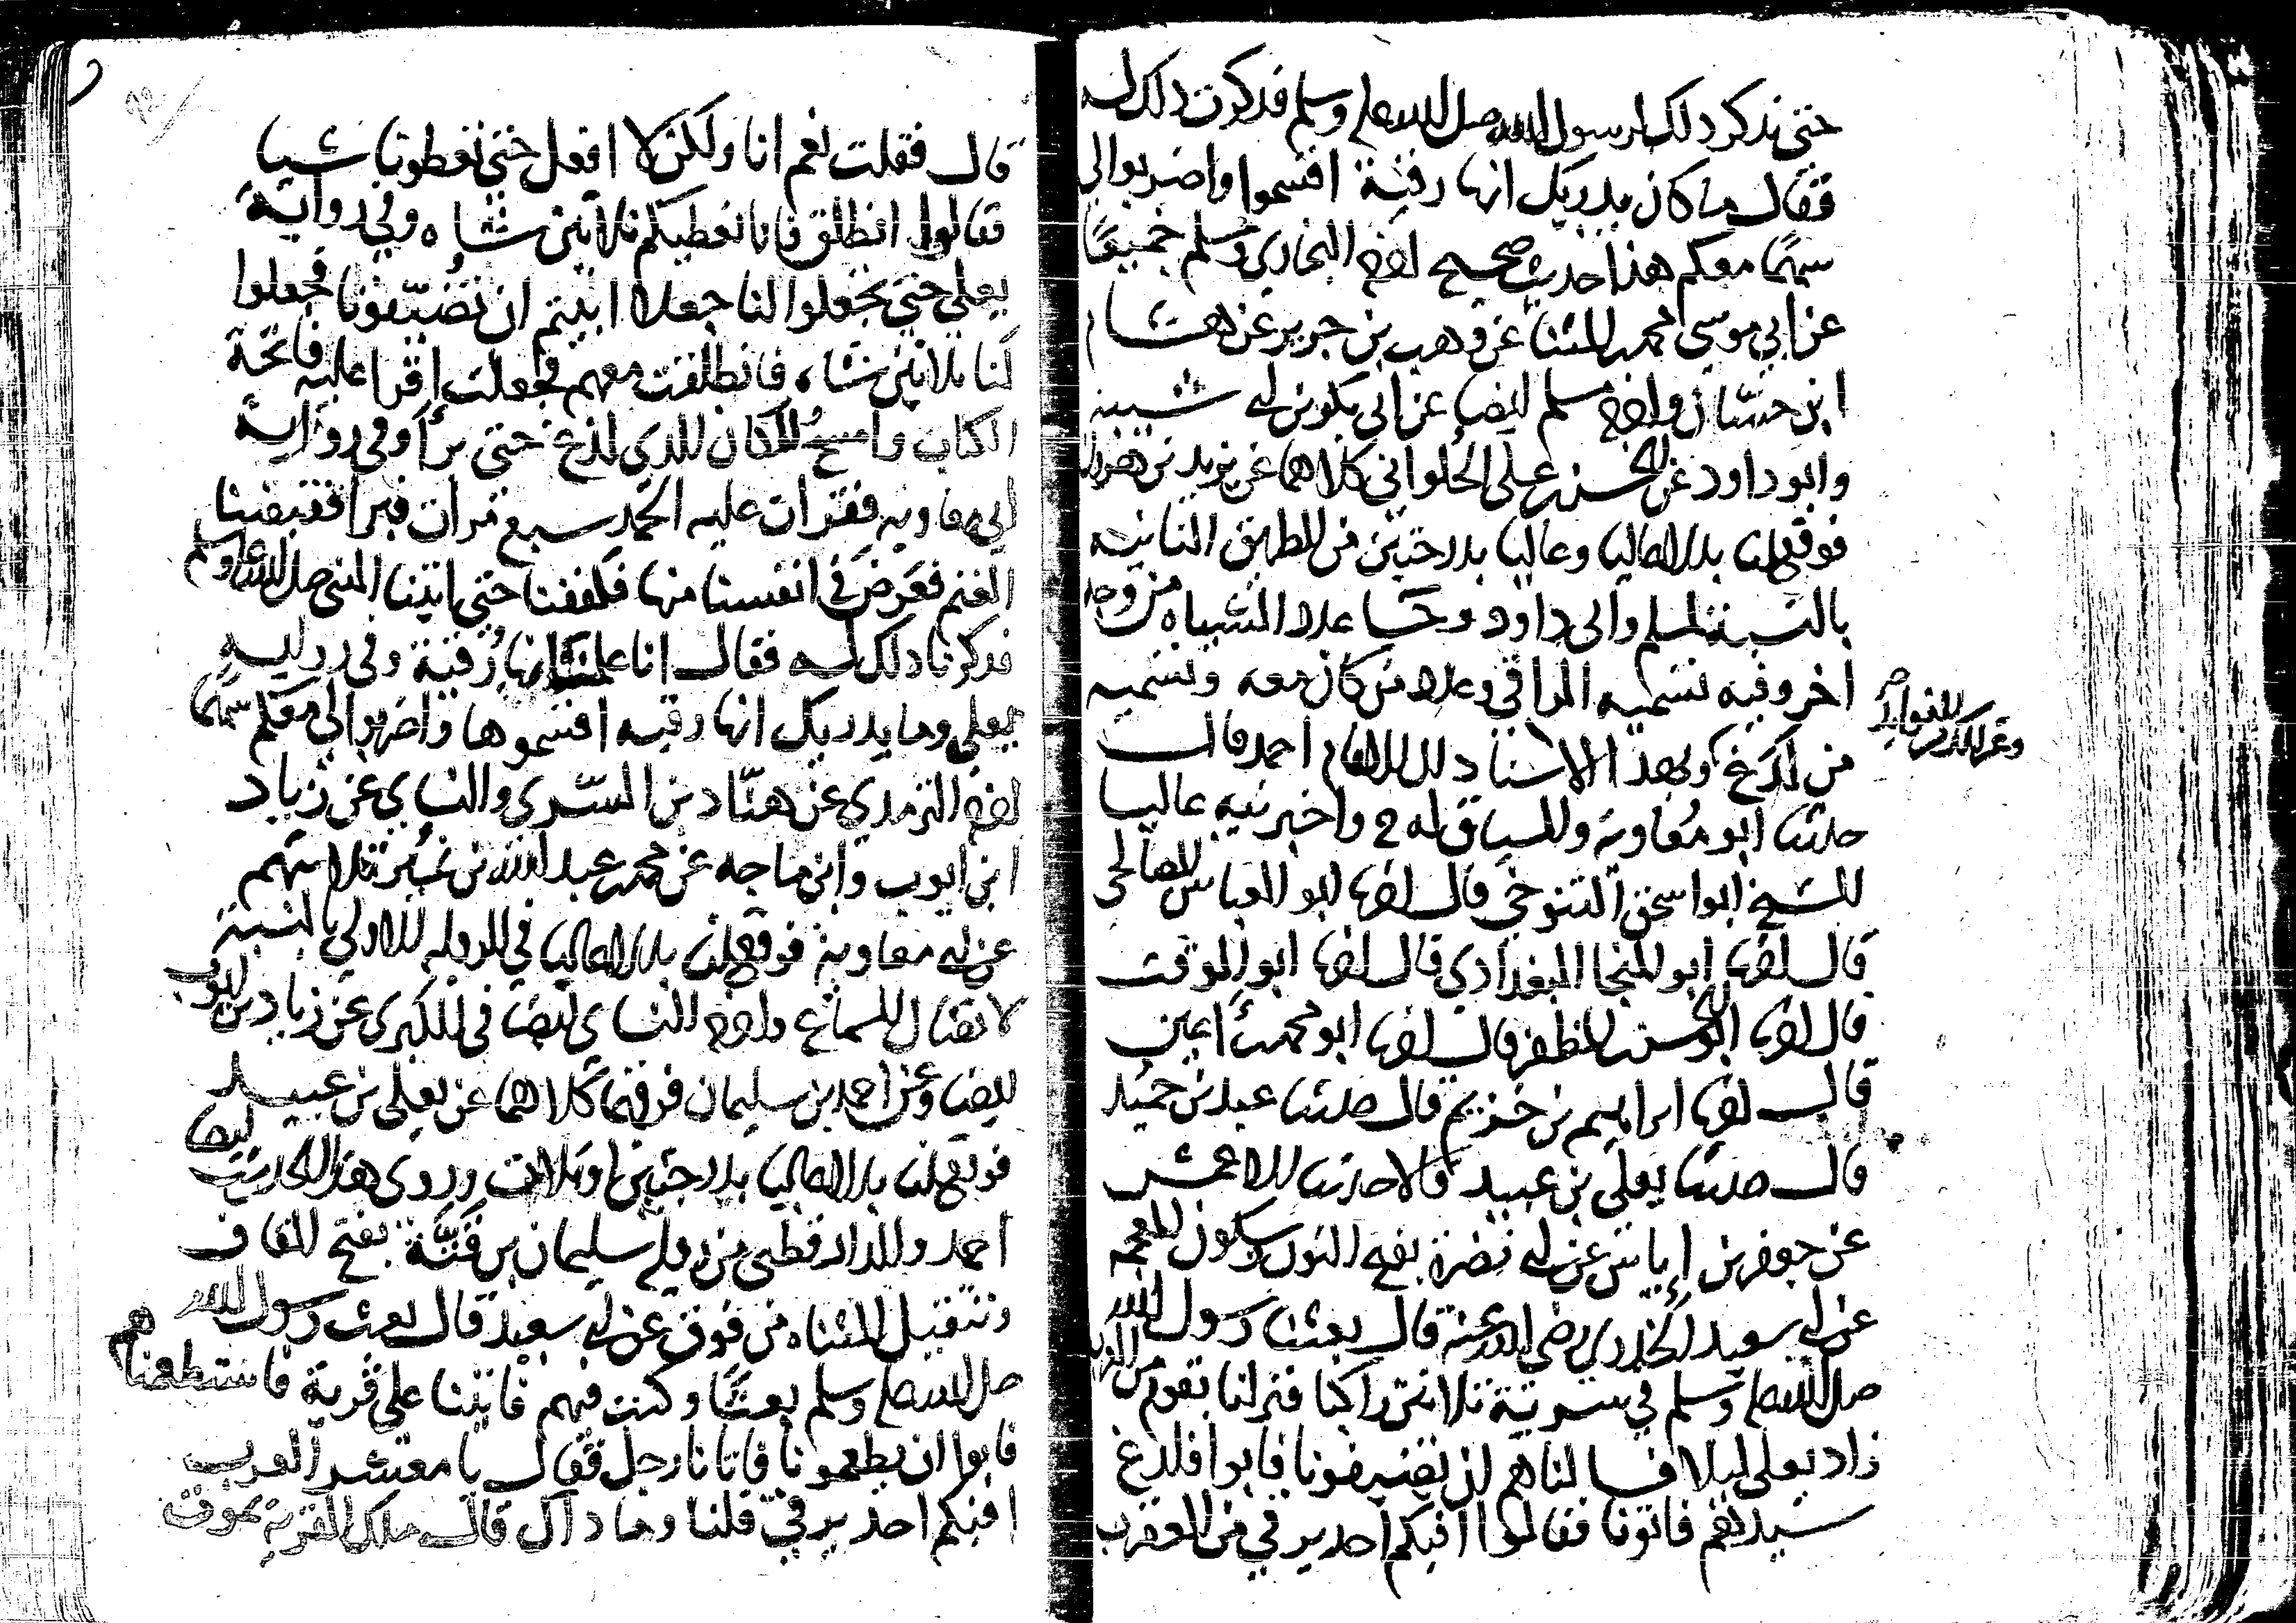 حتى نذكر ذلك لرسول الله صلى الله عليه وسلم فذكرت ذلك له
فقال ما كان يدريك انها رقية اقسموا واضربوا لي
سهما معكم هذا حديث صحيح اخرجه البخاري ومسلم جميعا
عن ابي موسى محمد بن المثنا عن وهب بن جرير عن هشام
ابن حسان واخرجه مسلم ايضا عن ابي بكر بن ابي شيبة
وابو داود عن الحسن بن علي الحلواني كلاهما عن يزيد بن هرون
فوقع لنا بدلا عاليا وعاليا بدرجتين من الطريق الثانية
بالنسبة لمسلم وابي داود وجا عدد الشياه من وجه
اخر وفيه تسمية الراقي وعدد من كان معه وتسمية
من لدغ وبهذا الاسناد الى الامام احمد قال
حدثنا ابو معاوية والسياق له ح واخبرنيه عاليا
الشيخ ابو اسحق التنوخي قال اخبرنا ابو العباس الصالحي
قال اخبرنا ابو المنجا البغدادي قال اخبرنا ابو الوقت
قال اخبرنا ابو الحسن بن المظفر قال اخبرنا ابو محمد بن اعين
قال اخبرنا ابراهيم بن خزيم قال حدثنا عبد بن حميد
قال حدثنا يعلى بن عبيد قالا حدثنا الاعمش
عن جعفر بن إياس عن ابي نضرة بفتح النون وسكون المعجمة
عن ابي سعيد الخدري رضي الله عنه قال بعثنا رسول الله
صلى الله عليه وسلم في سرية ثلاثين راكبا فنزلنا بقوم من العرب
زاد يعلى ليلا فسالناهم ان يضيفونا فابوا فلدغ
سيدهم فاتونا فقالوا افيكم احد يرقي من العقرب
قال فقلت نعم انا ولكن لا افعل حتى تعطونا شيا
فقالوا انطلق فانا نعطيكم ثلاثين شاه وفي رواية
يعلى حتى تجعلوا لنا جعلا ابيتم ان تضيّفونا فجعلوا
لنا ثلاثين شاه فانطلقت معهم فجعلت اقرا عليه فاتحة
الكتاب وامسح المكان الذي لدغ حتى برأ وفي رواية
ابي معاوية فقرات عليه الحمد سبع مرات فبرا فقبضنا
الغنم فعرض في انفسنا منها فكففنا حتى اتينا النبي صلى الله عليه وسلم
فذكرنا ذلك له فقال اما علمت انها رقية وفي رواية
يعلى وما يدريك انها رقية اقسموها واضربوا لي معكم سهما
اخرجه الترمذي عن هنّاد بن السّري والنساي عن زياد
ابن ايوب وابن ماجه عن محمد بن عبد الله بن نمير ثلاثتهم
عن ابي معاوية فوقع لنا بدلا عاليا في الرواية الاولى بالنسبة
لاتصال السماع واخرجه النساي ايضا في الكبرى عن زياد بن ايوب
ايضا وعن احمد بن سليمان فرقهما كلاهما عن يعلى بن عبيد
فوقع لنا بدلا عاليا بدرجتين او ثلاث وروى هذا الحديث ايضا
احمد والدارقطني من رواية سليمان بن قَتَّة بفتح القاف
وتثقيل المثناه من فوق عن ابي سعيد قال بعث رسول الله
صلى الله عليه وسلم بعثا وكنت فيهم فاتينا على قرية فاستطعمناهم
فابوا ان يطعمونا فاتانا رجل فقال يا معشر العرب
افيكم احد يرقي قلنا وما ذاك قال ملك القرية يموت